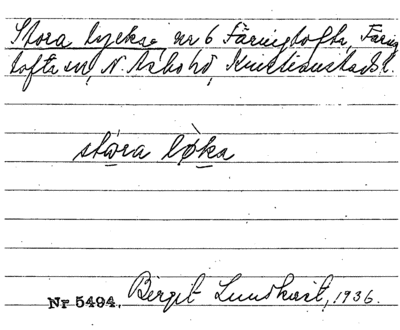 Stora lycka, nr 6 Färingtofta, Färing
tofta sn, N. Åsbo hd, Kristianstads l.
stóra lø̀ka
Nr 5494. Birgit Lundkvist, 1936.